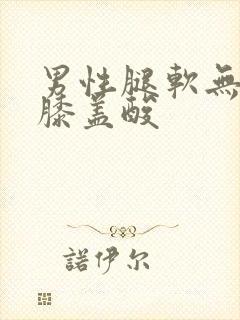 男性腿軟無
膝盖酸
諾伊尔